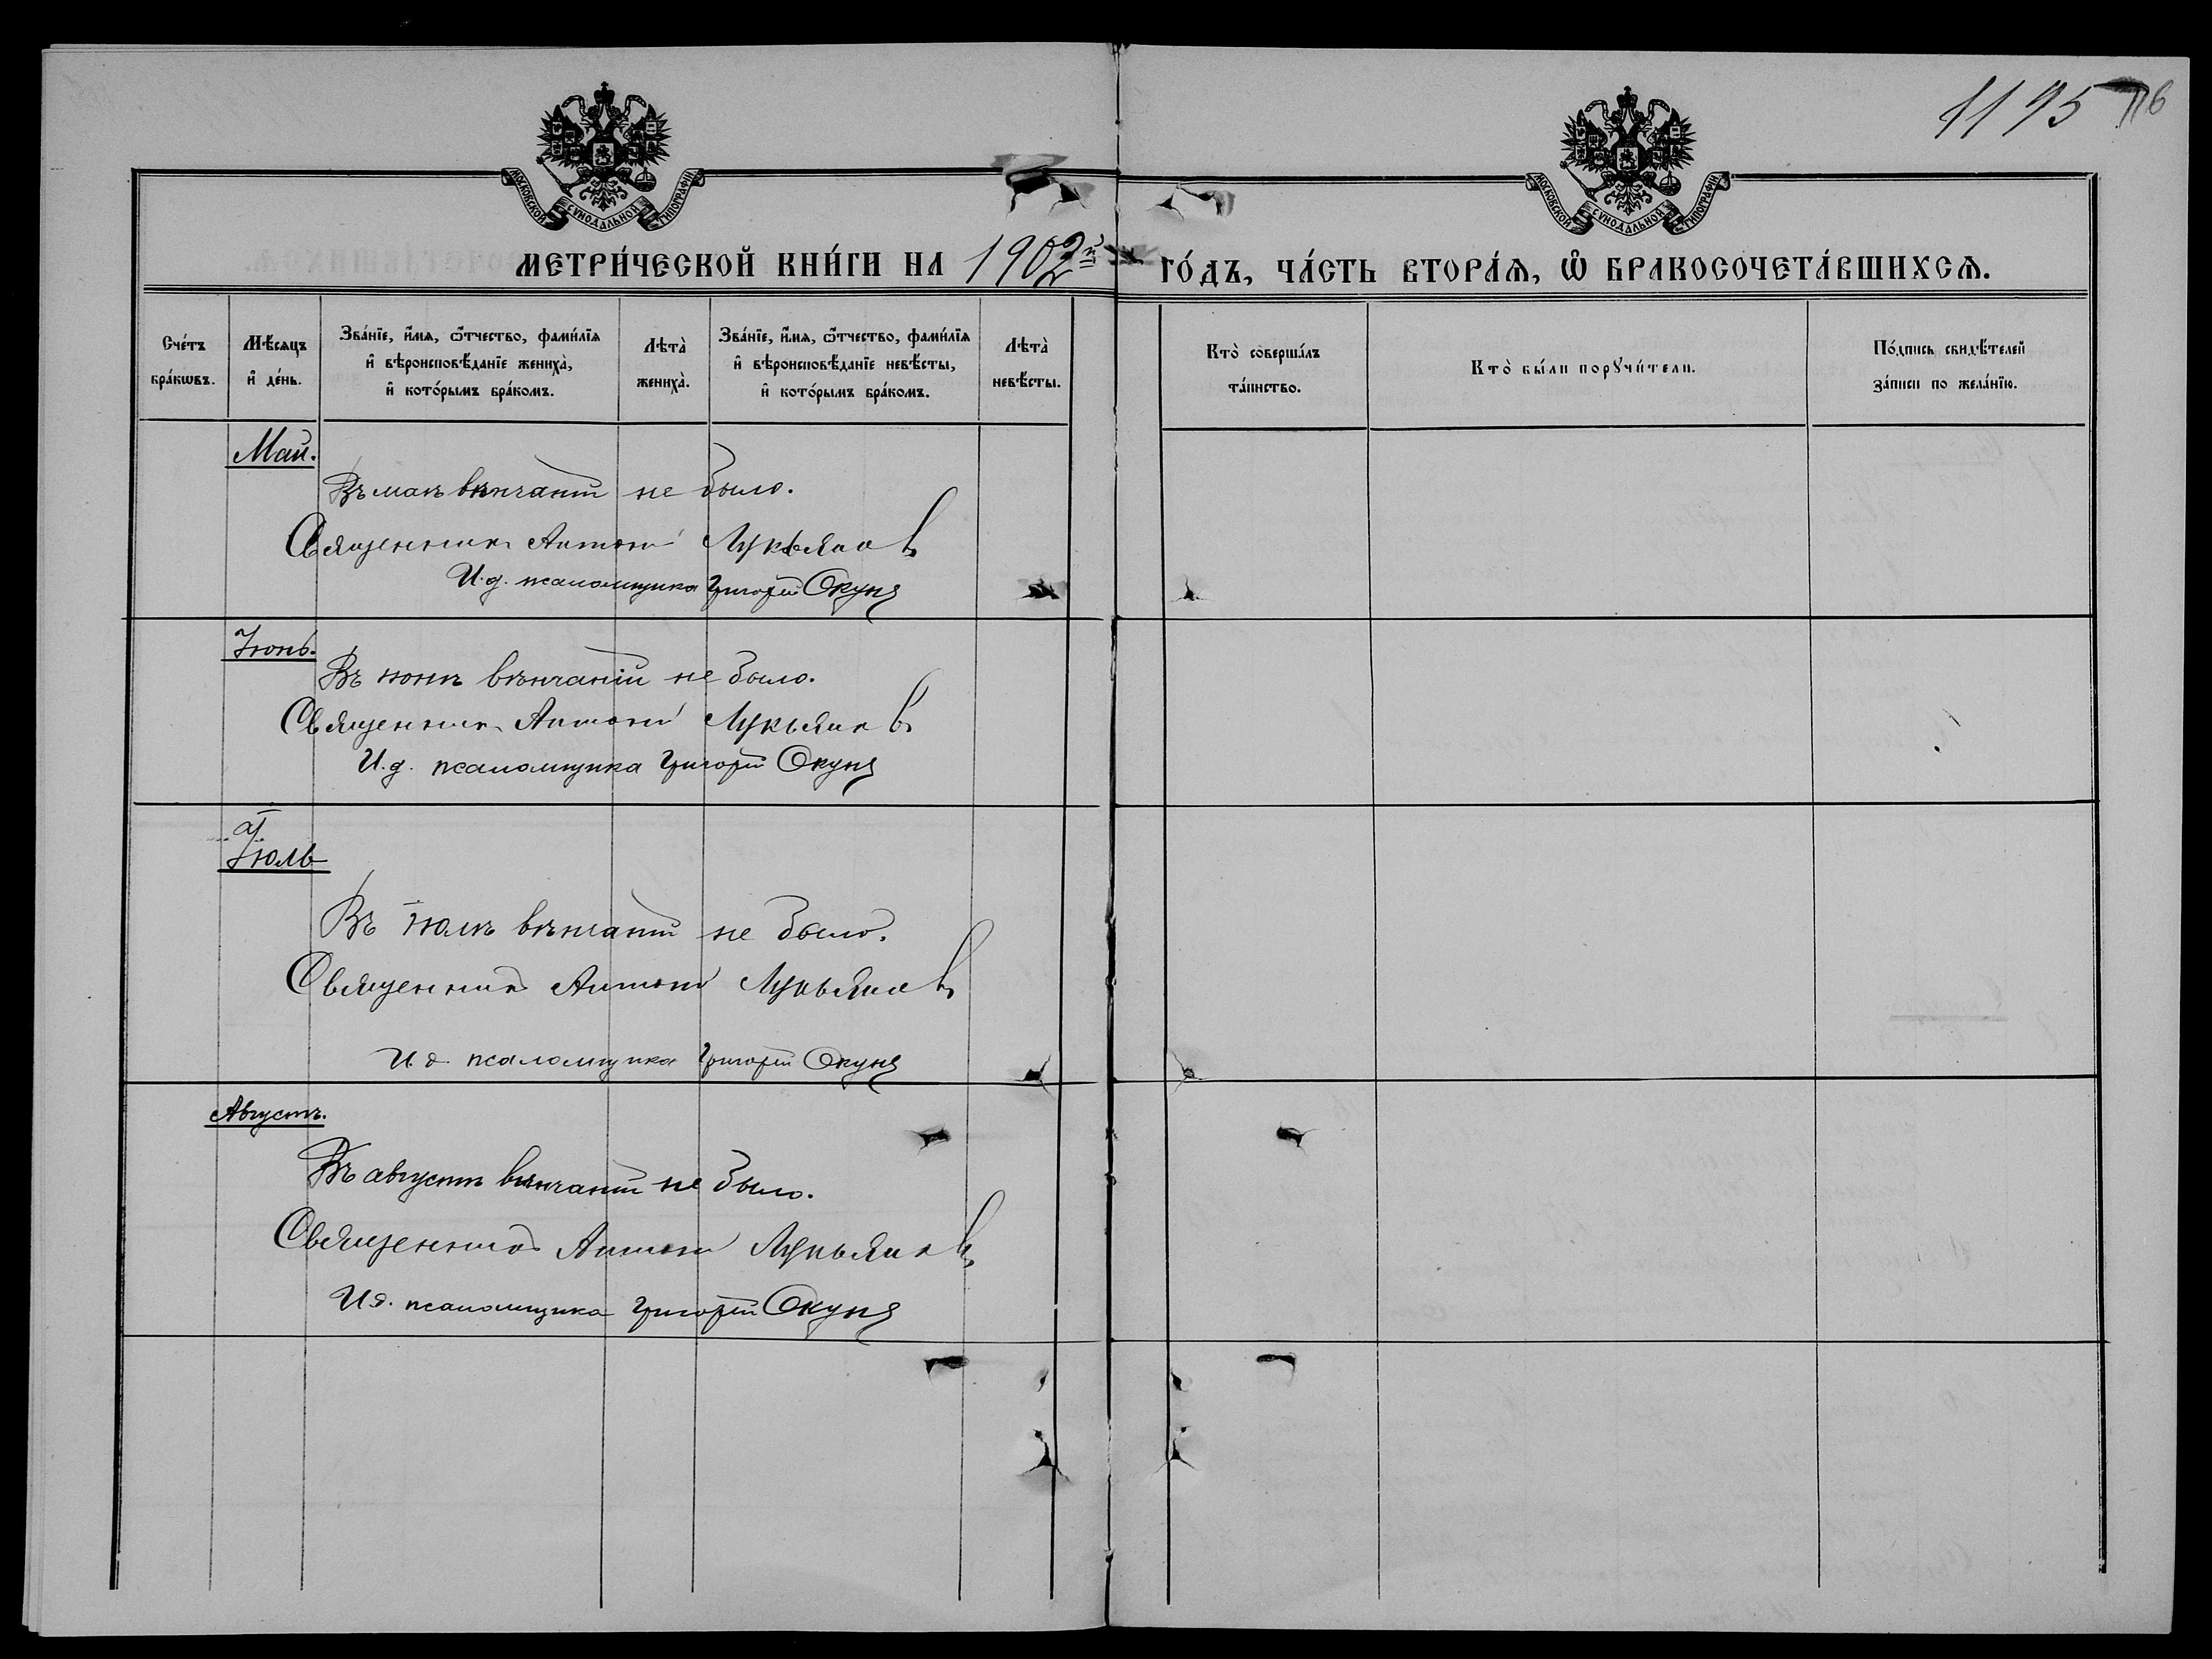 1195 116
МОСКОВСКОЙ СѴНОДАЛЬНОЙ ТИПОГРАФІИ
МОСКОВСКОЙ СѴНОДАЛЬНОЙ ТИПОГРАФІИ
МЕТРИ́ЧЕСКОЙ КНИ́ГИ НА 1902й ГО́ДЪ, ЧА́СТЬ ВТОРА́Ѧ, Ѽ БРАКОСОЧЕТА́ВШИХСѦ.
Сче́тъ бра́кѡвъ.
Мѣ́сяцъ и҆ де́нь.
Зва́нїе, и҆́мѧ, ѻ҆́тчество, фами́лїѧ и҆ вѣроисповѣ́данїе жениха̀, и҆ кото́рымъ бра́комъ.
Лѣта̀ жениха̀.
Зва́нїе, и҆́мѧ, ѻ҆́тчество, фами́лїѧ и҆ вѣроисповѣ́данїе невѣ́сты, и҆ кото́рымъ бра́комъ.
Лѣта̀ невѣ́сты.
Кто̀ соверша́лъ та́инство.
Кто̀ бы́ли порꙋчи́тели.
По́дпись свидѣ́телей за́писи по жела́нїю.
Май.
Въ маѣ вѣнчаній не было.
Священникъ Антоній Лукьяновъ
И.д. псаломщика Григорій Окунь
Іюнь.
Въ іюнѣ вѣнчаній не было.
Священникъ Антоній Лукьяновъ
И.д. псаломщика Григорій Окунь
Іюль
Въ іюлѣ вѣнчаній не было.
Священникъ Антоній Лукьяновъ
И.д. псаломщика Григорій Окунь
Августъ.
Въ августѣ вѣнчаній не было.
Священникъ Антоній Лукьяновъ
И.д. псаломщика Григорій Окунь